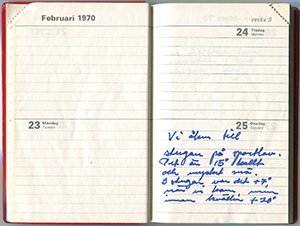 Februari 1970
vecka 9
24 Tisdag
23 Måndag
25 Onsdag
Vi åkte till
stugan på sportlov.
Det är 15° kallt
och mycket snö.
I stugan var det +4°
när vi kom
innan kvällen +20°